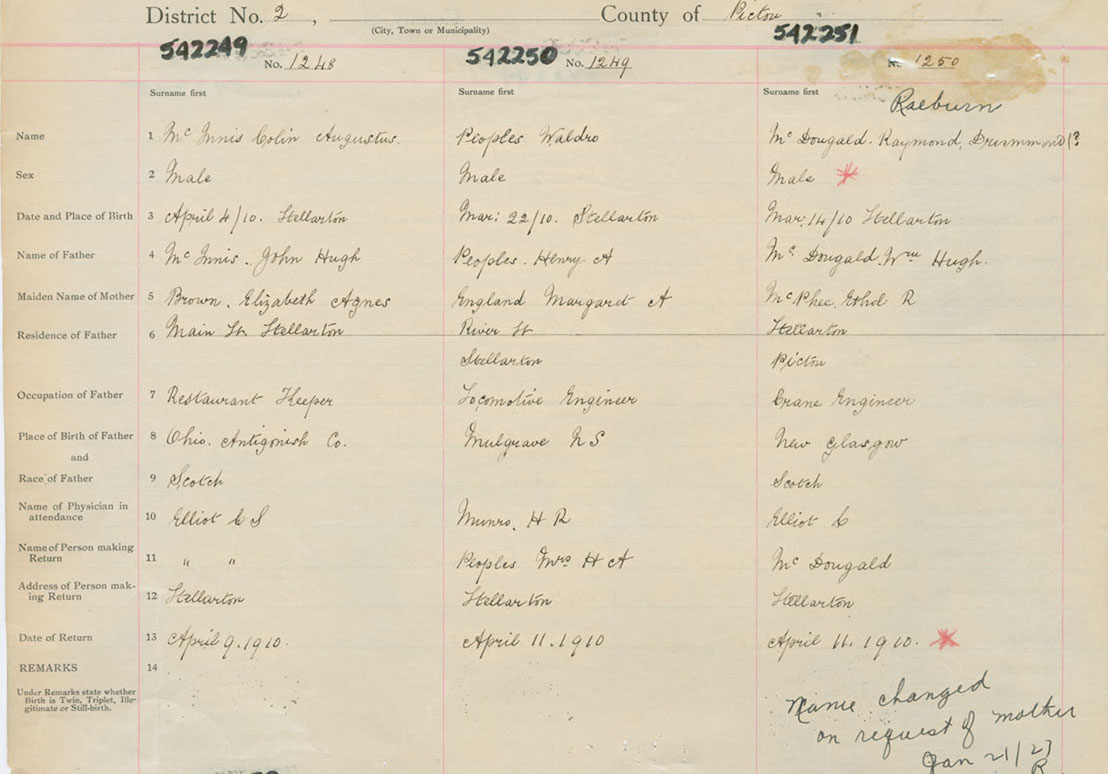 District No. 2, County of Pictou
(City, Town or Municipality)
542249 542250 542251
No. 1248 No. 1249 No. 1250
Surname first Surname first Surname first
Raeburn
Name 1 Mc Innis Colin Augustus. Peoples Waldro Mc Dougald. Raymond, Drummond (?
Sex 2 Male Male Male
Date and Place of Birth 3 April 4/10. Stellarton Mar: 22/10. Stellarton Mar: 14/10 Stellarton
Name of Father 4 Mc Innis. John Hugh Peoples. Henry A Mc Dougald. Wm Hugh.
Maiden Name of Mother 5 Brown. Elizabeth Agnes England Margaret A McPhee, Ethel R
Residence of Father 6 Main St. Stellarton River St Stellarton
Stellarton Pictou
Occupation of Father 7 Restaurant Keeper Locomotive Engineer Crane Engineer
Place of Birth of Father 8 Ohio. Antigonish Co. Mulgrave N S New Glasgow
and
Race of Father 9 Scotch Scotch
Name of Physician in
attendance 10 Elliot C S Munro, H R Elliot C
Name of Person making
Return 11 " " Peoples Mrs H A Mc Dougald
Address of Person mak-
ing Return 12 Stellarton Stellarton Stellarton
Date of Return 13 April 9.1910. April 11.1910 April 11.1910.
REMARKS 14
Under Remarks state whether
Birth is Twin, Triplet, Ille-
gitimate or Still-birth.
Name changed
on request of mother
Jan 21/27
R